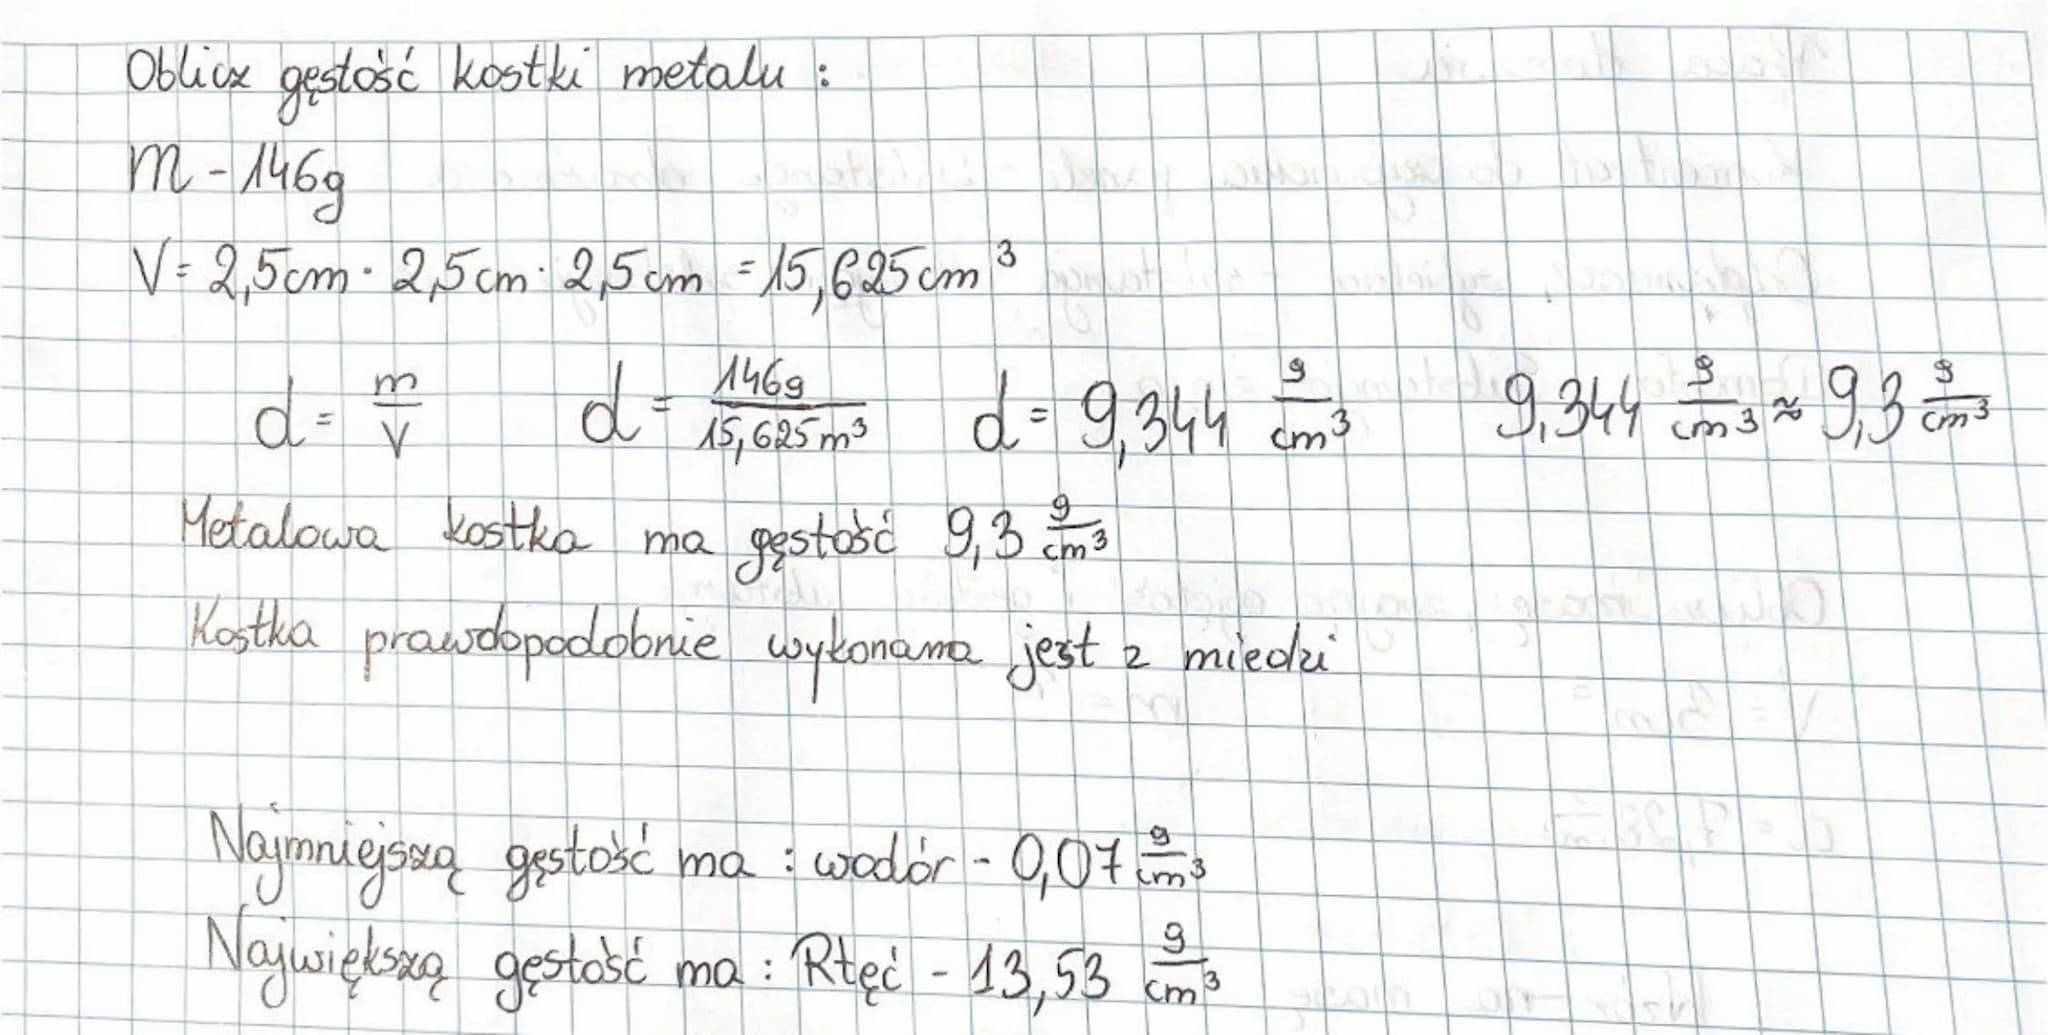 Oblicz gęstość kostki metalu :
m - 146g
V = 2,5cm · 2,5cm · 2,5cm = 15,625cm³
d = m/V d = 146g/15,625m³ d = 9,344 g/cm³ 9,344 g/cm³ ≈ 9,3 g/cm³
Metalowa kostka ma gęstość 9,3 g/cm³
Kostka prawdopodobnie wykonana jest z miedzi
Najmniejszą gęstość ma : wodór - 0,07 g/cm³
Największą gęstość ma : Rtęć - 13,53 g/cm³